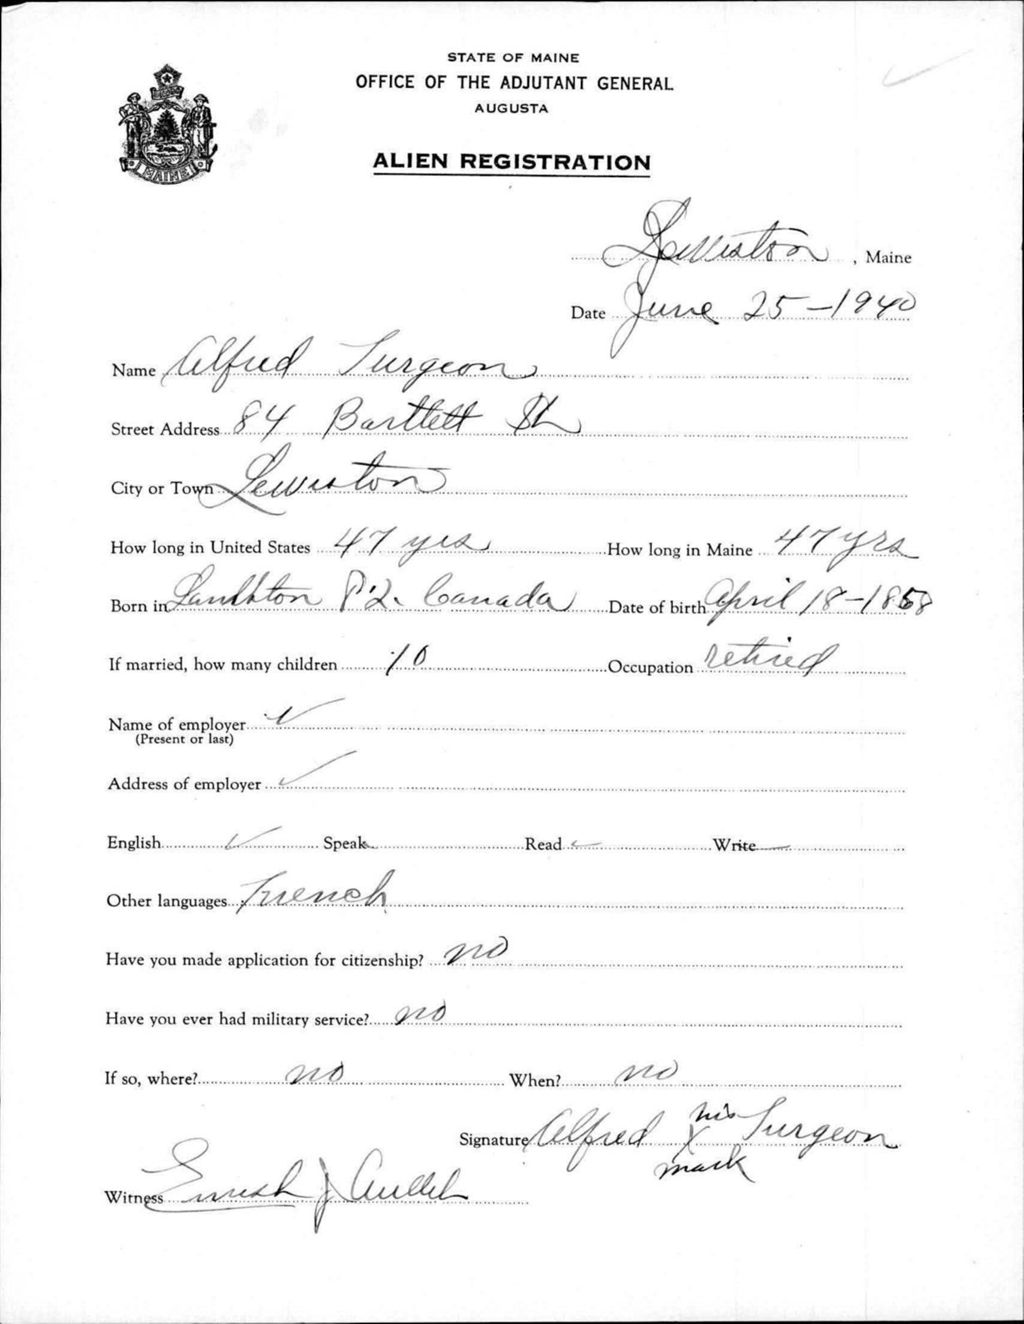 STATE OF MAINE
OFFICE OF THE ADJUTANT GENERAL
AUGUSTA
ALIEN REGISTRATION
MAINE
Lewiston, Maine
Date June 25-1940
Name Alfred Turgeon
Street Address 84 Bartlett St
City or Town Lewiston
How long in United States 47 yrs How long in Maine 47 yrs
Born in P.Q. Canada Date of birth April 18-1858
If married, how many children 10 Occupation retired
Name of employer ✓
(Present or last)
Address of employer ✓
English ✓ Speak Read ✓ Write
Other languages French
Have you made application for citizenship? no
Have you ever had military service? no
If so, where? no When? no
Signature Alfred his X mark Turgeon
Witness J